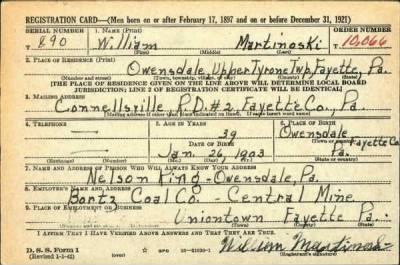 REGISTRATION CARD—(Men born on or after February 17, 1897 and on or before December 31, 1921)
SERIAL NUMBER 1. NAME (Print) ORDER NUMBER
890 William Martinoski 10,066
(First) (Middle) (Last)
2. PLACE OF RESIDENCE (Print)
Owensdale, Upper Tyrone Twp, Fayette, Pa.
(Number and street) (Town, township, village, or city) (County) (State)
[THE PLACE OF RESIDENCE GIVEN ON THE LINE ABOVE WILL DETERMINE LOCAL BOARD
JURISDICTION; LINE 2 OF REGISTRATION CERTIFICATE WILL BE IDENTICAL]
3. MAILING ADDRESS
Connellsville, R.D.#2, Fayette Co., Pa.
[Mailing address if other than place indicated on line 2. If same insert word same]
4. TELEPHONE 5. AGE IN YEARS 6. PLACE OF BIRTH
— 39 Owensdale
DATE OF BIRTH (Town or county)
Fayette Co.
— Jan. 26, 1903 Pa.
(Exchange) (Number) (Mo.) (Day) (Yr.) (State or country)
7. NAME AND ADDRESS OF PERSON WHO WILL ALWAYS KNOW YOUR ADDRESS
Nelson King - Owensdale, Pa.
8. EMPLOYER'S NAME AND ADDRESS
Bortz Coal Co. - Central Mine
9. PLACE OF EMPLOYMENT OR BUSINESS
Uniontown Fayette Pa.
(Number and street or R. F. D. number) (Town) (County) (State)
I AFFIRM THAT I HAVE VERIFIED ABOVE ANSWERS AND THAT THEY ARE TRUE.
D. S. S. Form 1
(Revised 1-1-42) GPO William Martinoski
(Registrant's signature)